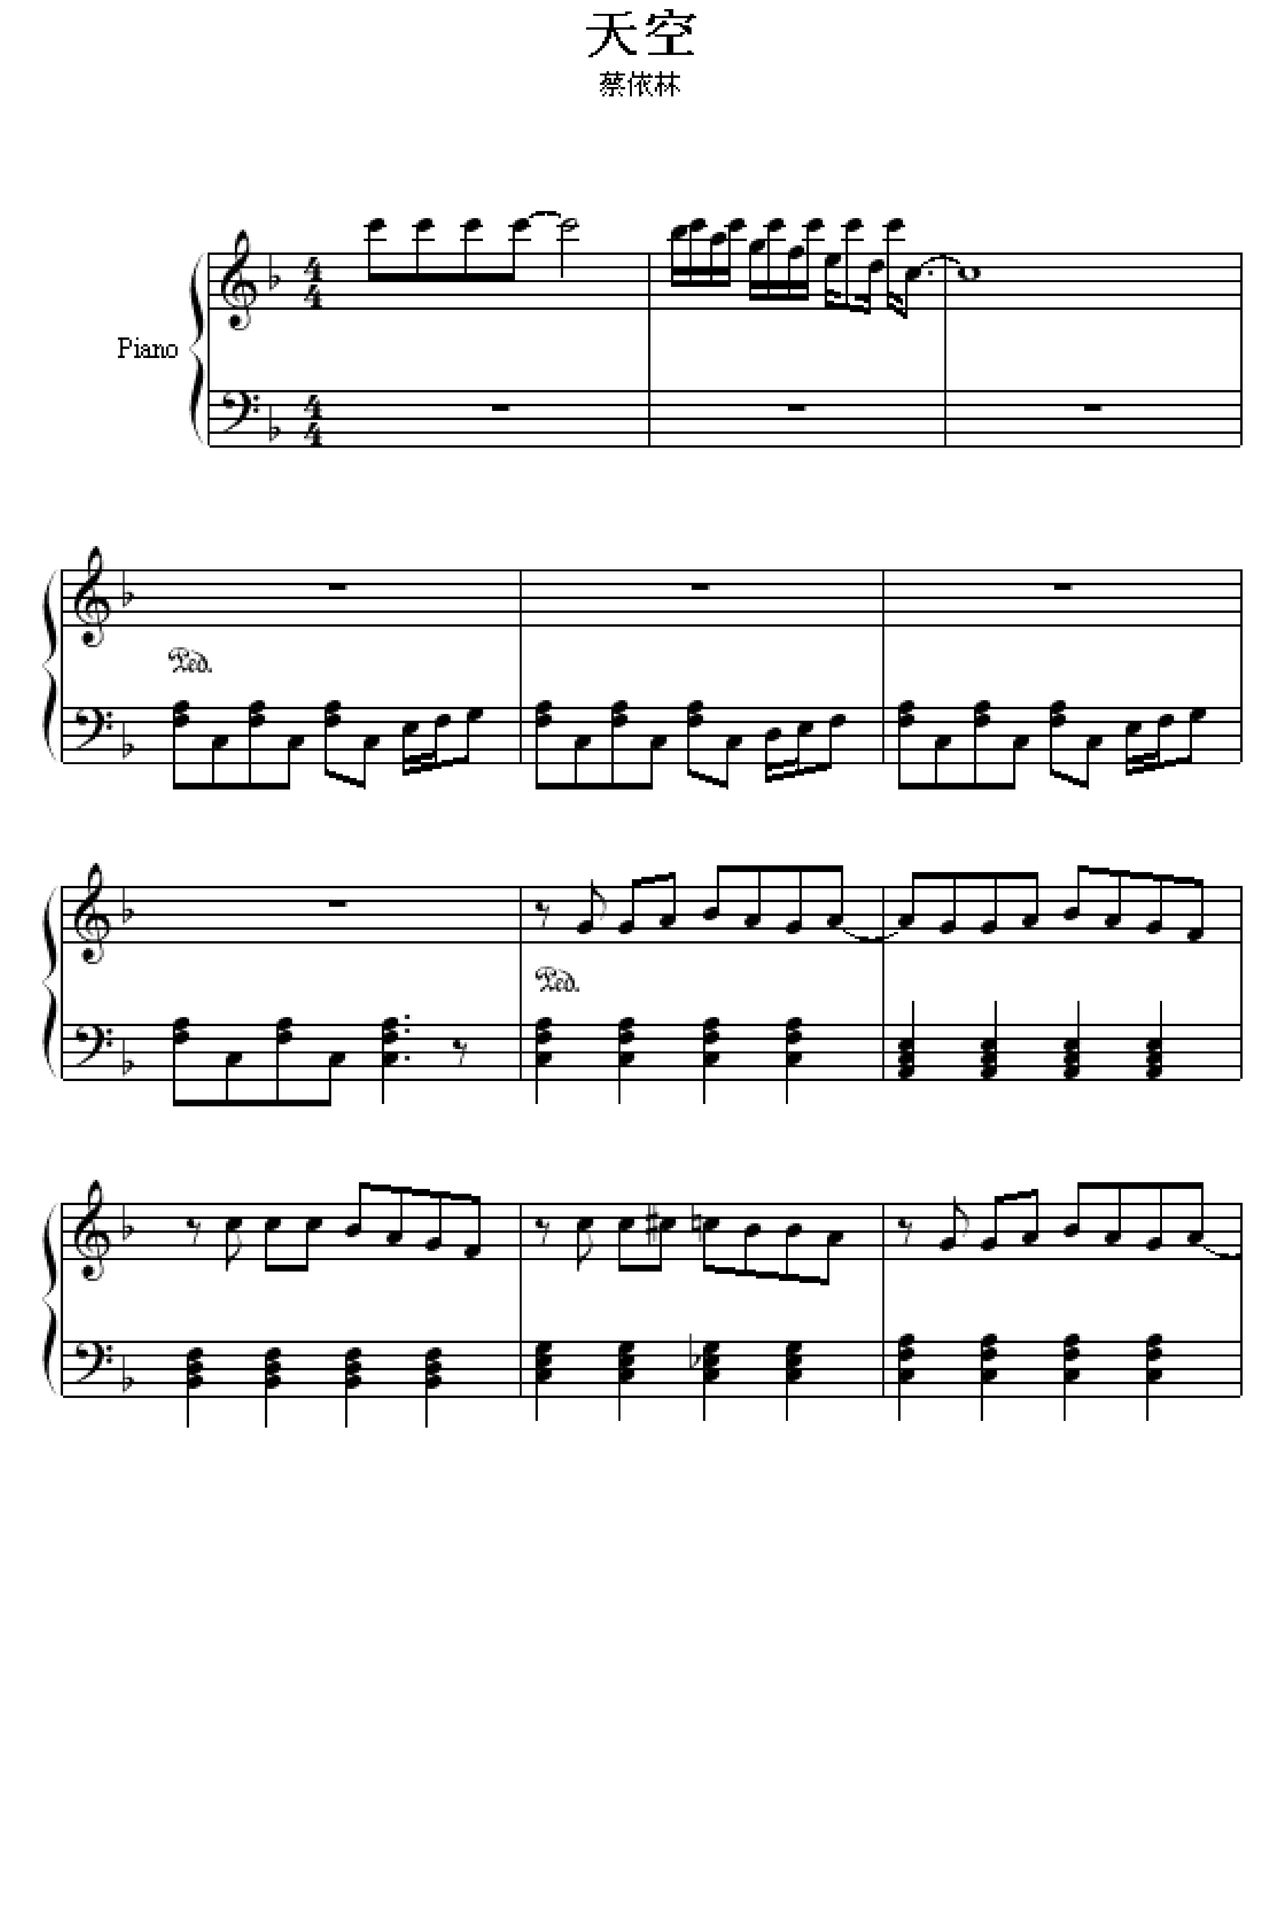 天空
蔡依林
Piano
4
4
4
4
Ped.
Ped.